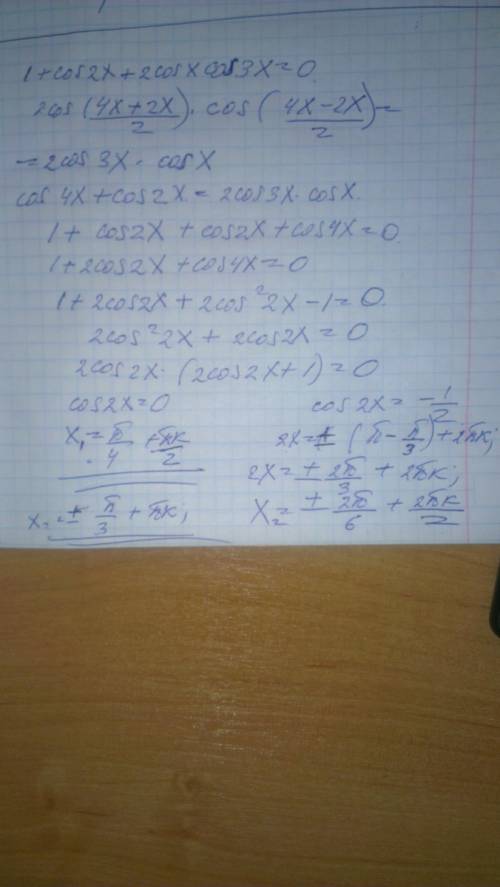 1 + cos2x + 2cosx cos3x = 0
2cos (4x+2x)/2 · cos (4x-2x)/2 =
= 2cos 3x · cosx
cos 4x + cos2x = 2cos3x · cosx.
1 + cos2x + cos2x + cos4x = 0
1 + 2cos2x + cos4x = 0
1 + 2cos2x + 2cos²2x - 1 = 0
2cos²2x + 2cos2x = 0
2cos2x · (2cos2x + 1) = 0
cos2x = 0
x₁ = π/4 + πk/2
x₂ = ± π/3 + πk;
cos 2x = -1/2
2x = ± (π - π/3) + 2πk;
2x = ± 2π/3 + 2πk;
x₂ = ± 2π/6 + 2πk/2